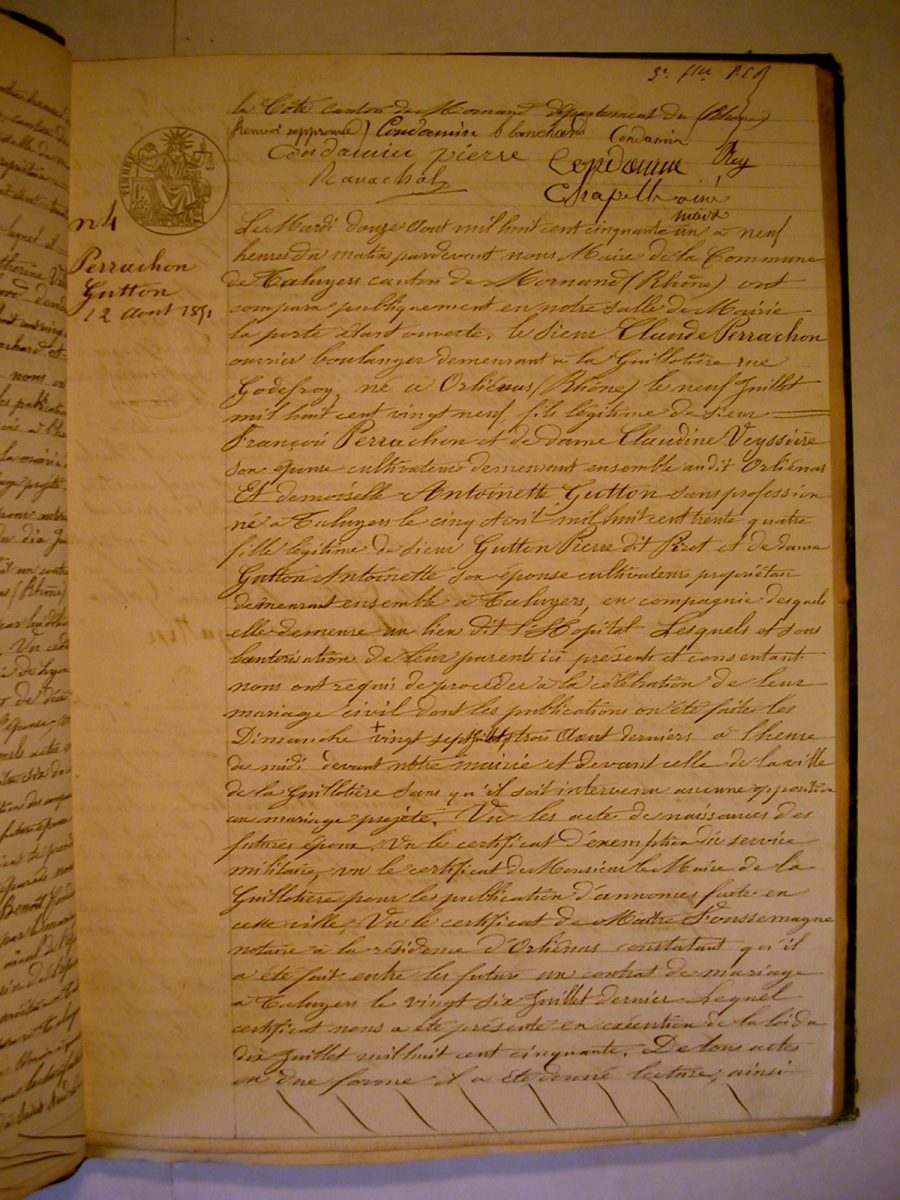 la Côte canton de Mornand département du (Rhône)
renvoi supprimé) Condamin Blanchard Condamin
Condamin pierre Condamin Rey
Ravachol
Chapelle ainé
maire
TIMBRE
n 4
Perrachon
Gutton
12 aout 1851
Le Mardi douze aout mil huit cent cinquante un a neuf
heures du matin pardevant nous Maire de la Commune
de Taluyers canton de Mornand (Rhône) ont
comparu publiquement en notre salle de Mairie
la porte étant ouverte, le sieur Claude Perrachon
ouvrier boulanger demeurant a la Guillotière rue
Godefroy, né a Orliénas (Rhône) le neuf Juillet
mil huit cent vingt neuf, fils légitime de sieur
François Perrachon et de dame Claudine Veyssière
son epouse cultivateurs demeurant ensemble audit Orliénas
Et demoiselle Antoinette Gutton sans profession
né a Taluyers le cinq Avril mil huit cent trente quatre
fille légitime de sieur Gutton Pierre dit Pirot et de dame
Gutton Antoinette son épouse cultivateurs propriétair
demeurant ensemble a Taluyers, en compagnie desquels
elle demeure au lieu dit l'Hopital Lesquels et sous
l'autorisation de leur parents ici présents et consentant
nous ont requis de procéder a la célébration de leur
mariage civil dont les publications on été faites les
Dimanche vingt sept Juillet trois Aout derniers a l'heure
de midi devant notre mairie et devant celle de la ville
de la Guillotière sans qu'il soit intervenu aucune opposition
au mariage projeté, Vu les acte de naissances des
futures époux, Vu le certificat d'exemption du service
militaire, vu le certificat de Monsieur le Maire de la
Guillotière pour les publication d'annonces faite en
cette ville, Vu le certificat de Maitre Fonssemagne
notaire a la résidence d'Orliénas constatant qu'il
a été fait entre les future un contrat de mariage
a Taluyers le vingt six Juillet dernier Lequel
certificat nous a été présente en exécution de la loi du
dix Juillet mil huit cent cinquante, De tous actes
en due forme il a été donné lecture, ainsi